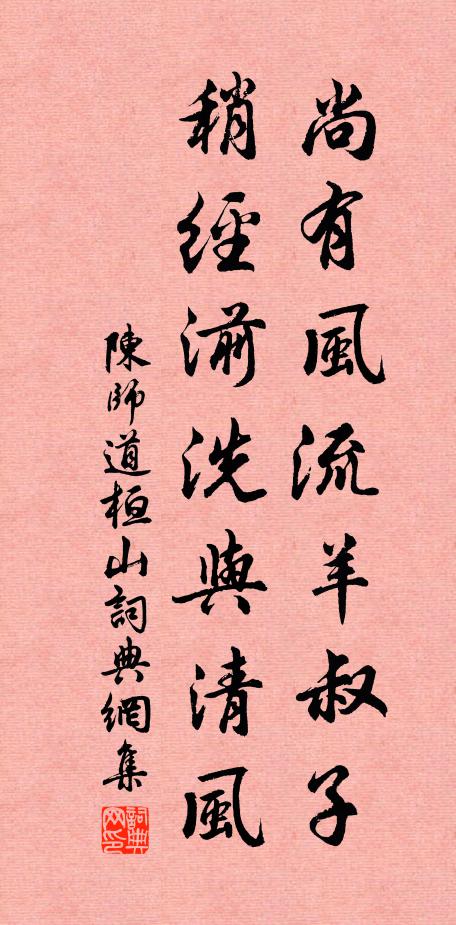 尚有風流羊叔子
稍經湔洗與清風
陳師道桓山詞典網集
詞典网印